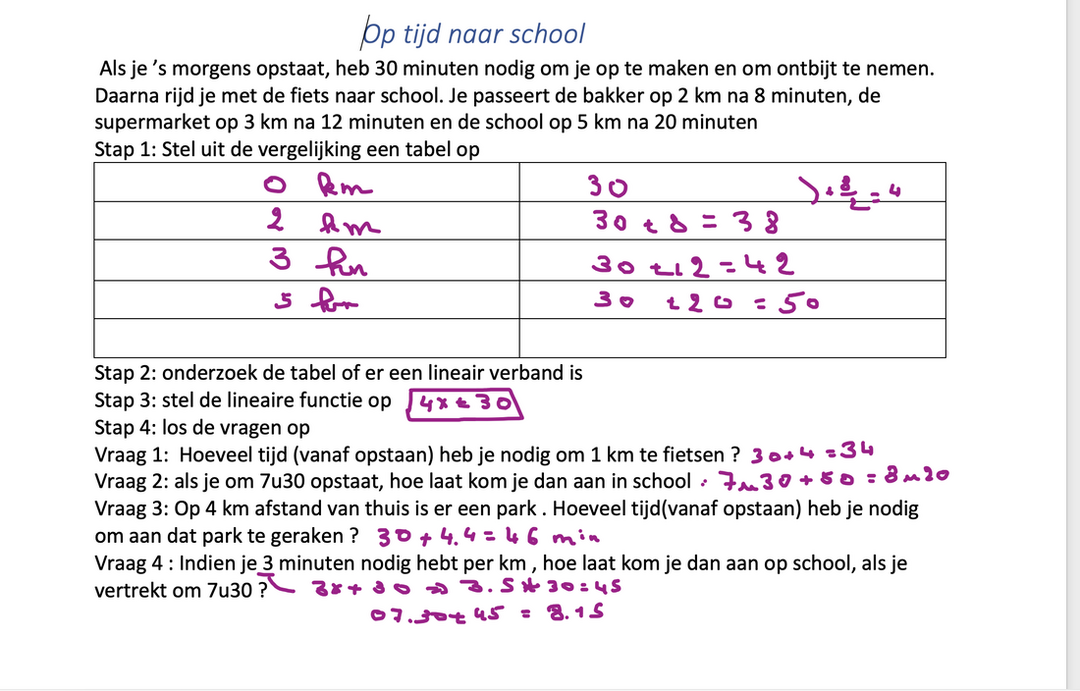 Op tijd naar school
Als je 's morgens opstaat, heb 30 minuten nodig om je op te maken en om ontbijt te nemen.
Daarna rijd je met de fiets naar school. Je passeert de bakker op 2 km na 8 minuten, de
supermarket op 3 km na 12 minuten en de school op 5 km na 20 minuten
Stap 1: Stel uit de vergelijking een tabel op
0 km 30 + 8/2 = 4
2 km 30 + 8 = 38
3 km 30 + 12 = 42
5 km 30 + 20 = 50
Stap 2: onderzoek de tabel of er een lineair verband is
Stap 3: stel de lineaire functie op 4x + 30
Stap 4: los de vragen op
Vraag 1: Hoeveel tijd (vanaf opstaan) heb je nodig om 1 km te fietsen ? 30+4 = 34
Vraag 2: als je om 7u30 opstaat, hoe laat kom je dan aan in school : 7u30 + 50 = 8u20
Vraag 3: Op 4 km afstand van thuis is er een park . Hoeveel tijd(vanaf opstaan) heb je nodig
om aan dat park te geraken ? 30 + 4.4 = 46 min
Vraag 4 : Indien je 3 minuten nodig hebt per km , hoe laat kom je dan aan op school, als je
vertrekt om 7u30 ? 3x + 30 => 3.5 + 30 = 45
07.30 + 45 = 8.15